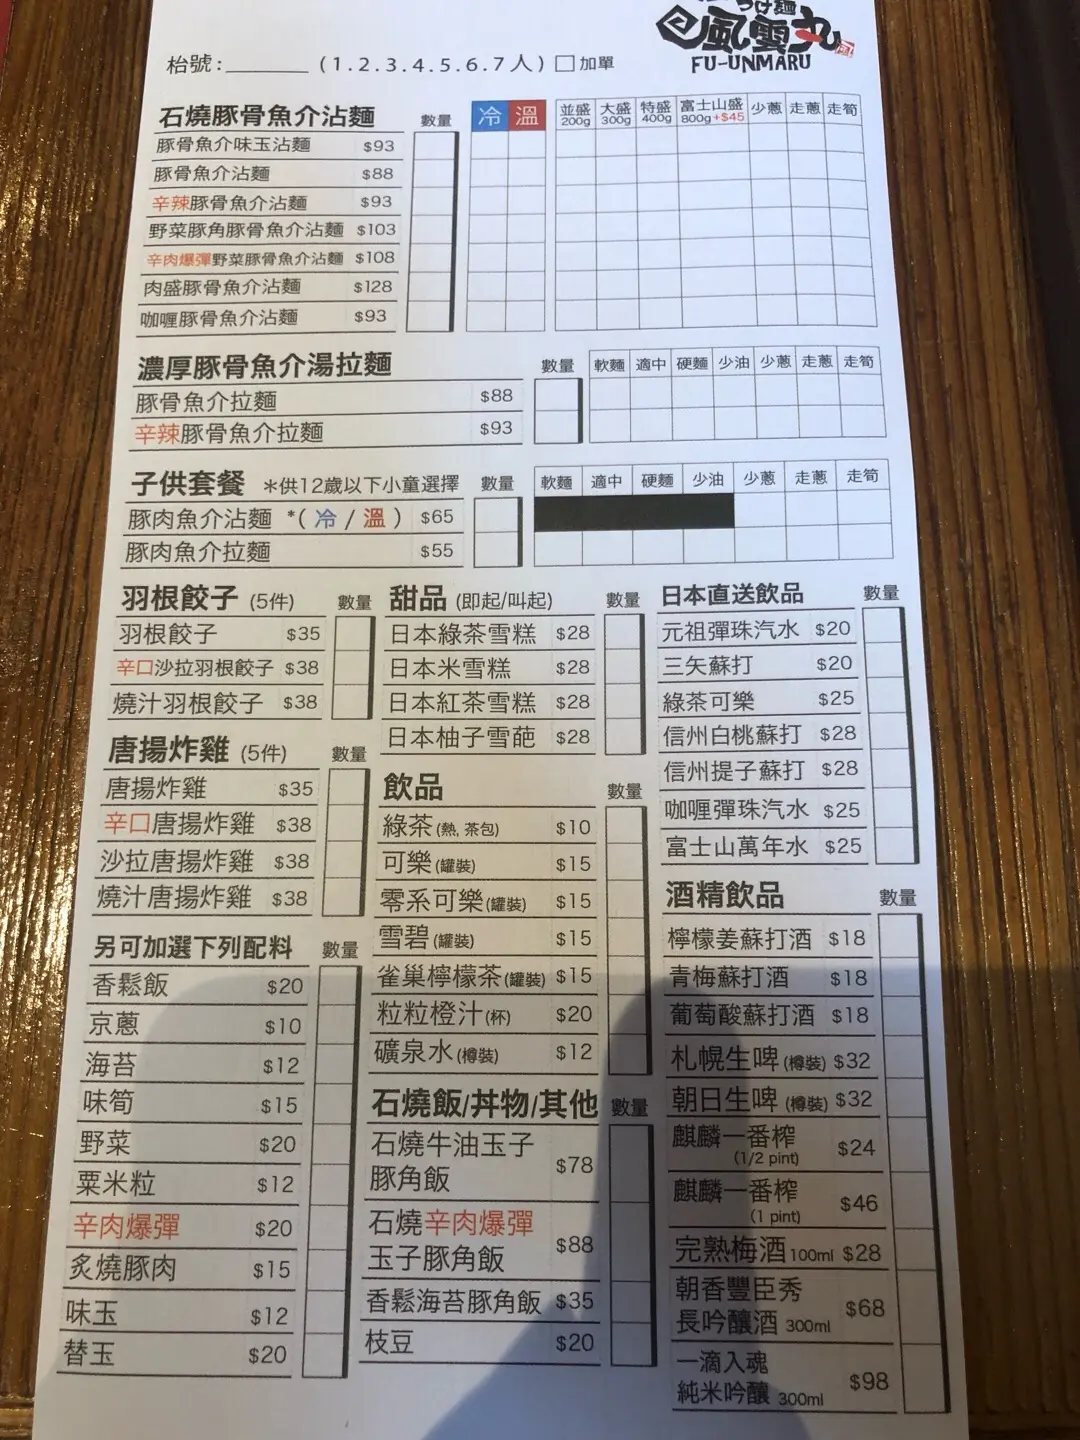 つけ麺
風雲丸
FU-UNMARU
枱號:_______ (1.2.3.4.5.6.7人) □加單
石燒豚骨魚介沾麵 數量 冷 溫 並盛 200g 大盛 300g 特盛 400g 富士山盛 800g+$45 少蔥 走蔥 走筍
豚骨魚介味玉沾麵 $93
豚骨魚介沾麵 $88
辛辣豚骨魚介沾麵 $93
野菜豚角豚骨魚介沾麵 $103
辛肉爆彈野菜豚骨魚介沾麵 $108
肉盛豚骨魚介沾麵 $128
咖喱豚骨魚介沾麵 $93
濃厚豚骨魚介湯拉麵 數量 軟麵 適中 硬麵 少油 少蔥 走蔥 走筍
豚骨魚介拉麵 $88
辛辣豚骨魚介拉麵 $93
子供套餐 *供12歲以下小童選擇 數量 軟麵 適中 硬麵 少油 少蔥 走蔥 走筍
豚肉魚介沾麵 *(冷/溫) $65
豚肉魚介拉麵 $55
羽根餃子 (5件) 數量
羽根餃子 $35
辛口沙拉羽根餃子 $38
燒汁羽根餃子 $38
唐揚炸雞 (5件) 數量
唐揚炸雞 $35
辛口唐揚炸雞 $38
沙拉唐揚炸雞 $38
燒汁唐揚炸雞 $38
另可加選下列配料 數量
香鬆飯 $20
京蔥 $10
海苔 $12
味筍 $15
野菜 $20
粟米粒 $12
辛肉爆彈 $20
炙燒豚肉 $15
味玉 $12
替玉 $20
甜品 (即起/叫起) 數量
日本綠茶雪糕 $28
日本米雪糕 $28
日本紅茶雪糕 $28
日本柚子雪葩 $28
飲品 數量
綠茶(熱, 茶包) $10
可樂(罐裝) $15
零系可樂(罐裝) $15
雪碧(罐裝) $15
雀巢檸檬茶(罐裝) $15
粒粒橙汁(杯) $20
礦泉水(樽裝) $12
石燒飯/丼物/其他 數量
石燒牛油玉子
豚角飯 $78
石燒辛肉爆彈
玉子豚角飯 $88
香鬆海苔豚角飯 $35
枝豆 $20
日本直送飲品 數量
元祖彈珠汽水 $20
三矢蘇打 $20
綠茶可樂 $25
信州白桃蘇打 $28
信州提子蘇打 $28
咖喱彈珠汽水 $25
富士山萬年水 $25
酒精飲品 數量
檸檬姜蘇打酒 $18
青梅蘇打酒 $18
葡萄酸蘇打酒 $18
札幌生啤(樽裝) $32
朝日生啤(樽裝) $32
麒麟一番榨
(1/2 pint) $24
麒麟一番榨
(1 pint) $46
完熟梅酒100ml $28
朝香豐臣秀
長吟釀酒 300ml $68
一滴入魂
純米吟釀 300ml $98